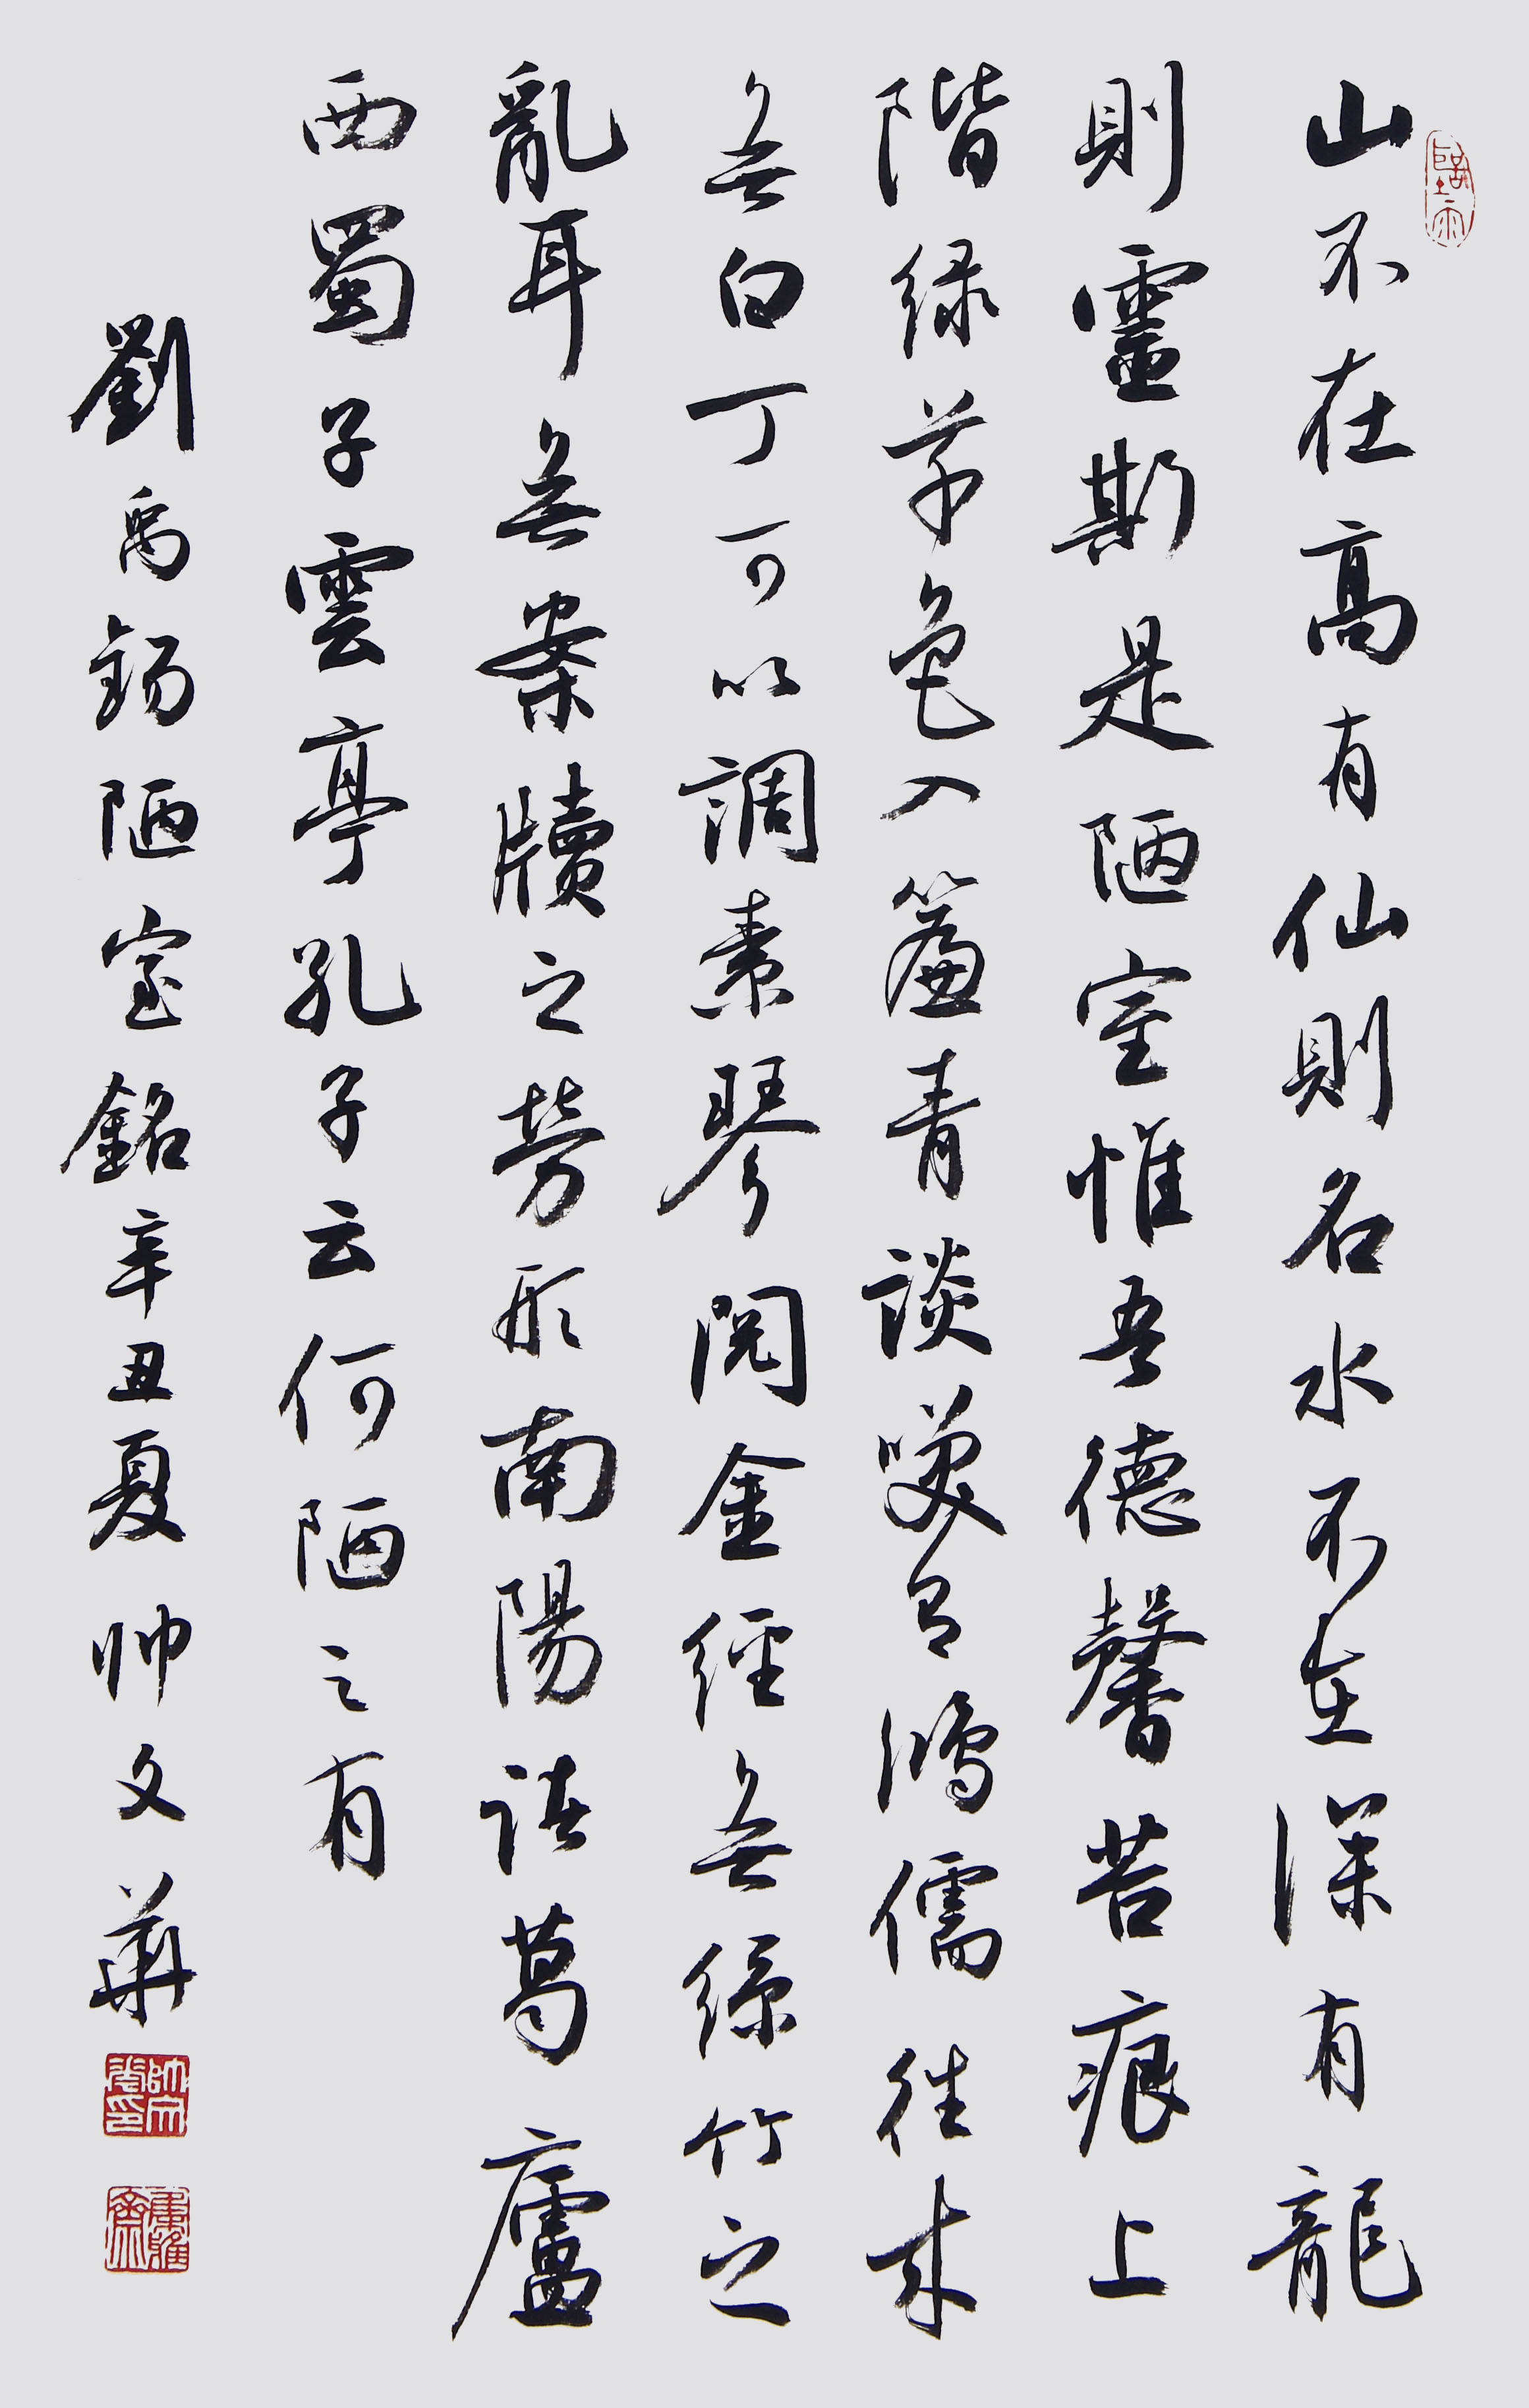 山不在高有仙則名水不在深有龍
則靈斯是陋室惟吾德馨苔痕上
階綠草色入簾青談笑有鴻儒往來
無白丁可以調素琴閱金經無絲竹之
亂耳無案牘之勞形南陽諸葛廬
西蜀子雲亭孔子云何陋之有
劉禹錫陋室銘辛丑夏帥文華